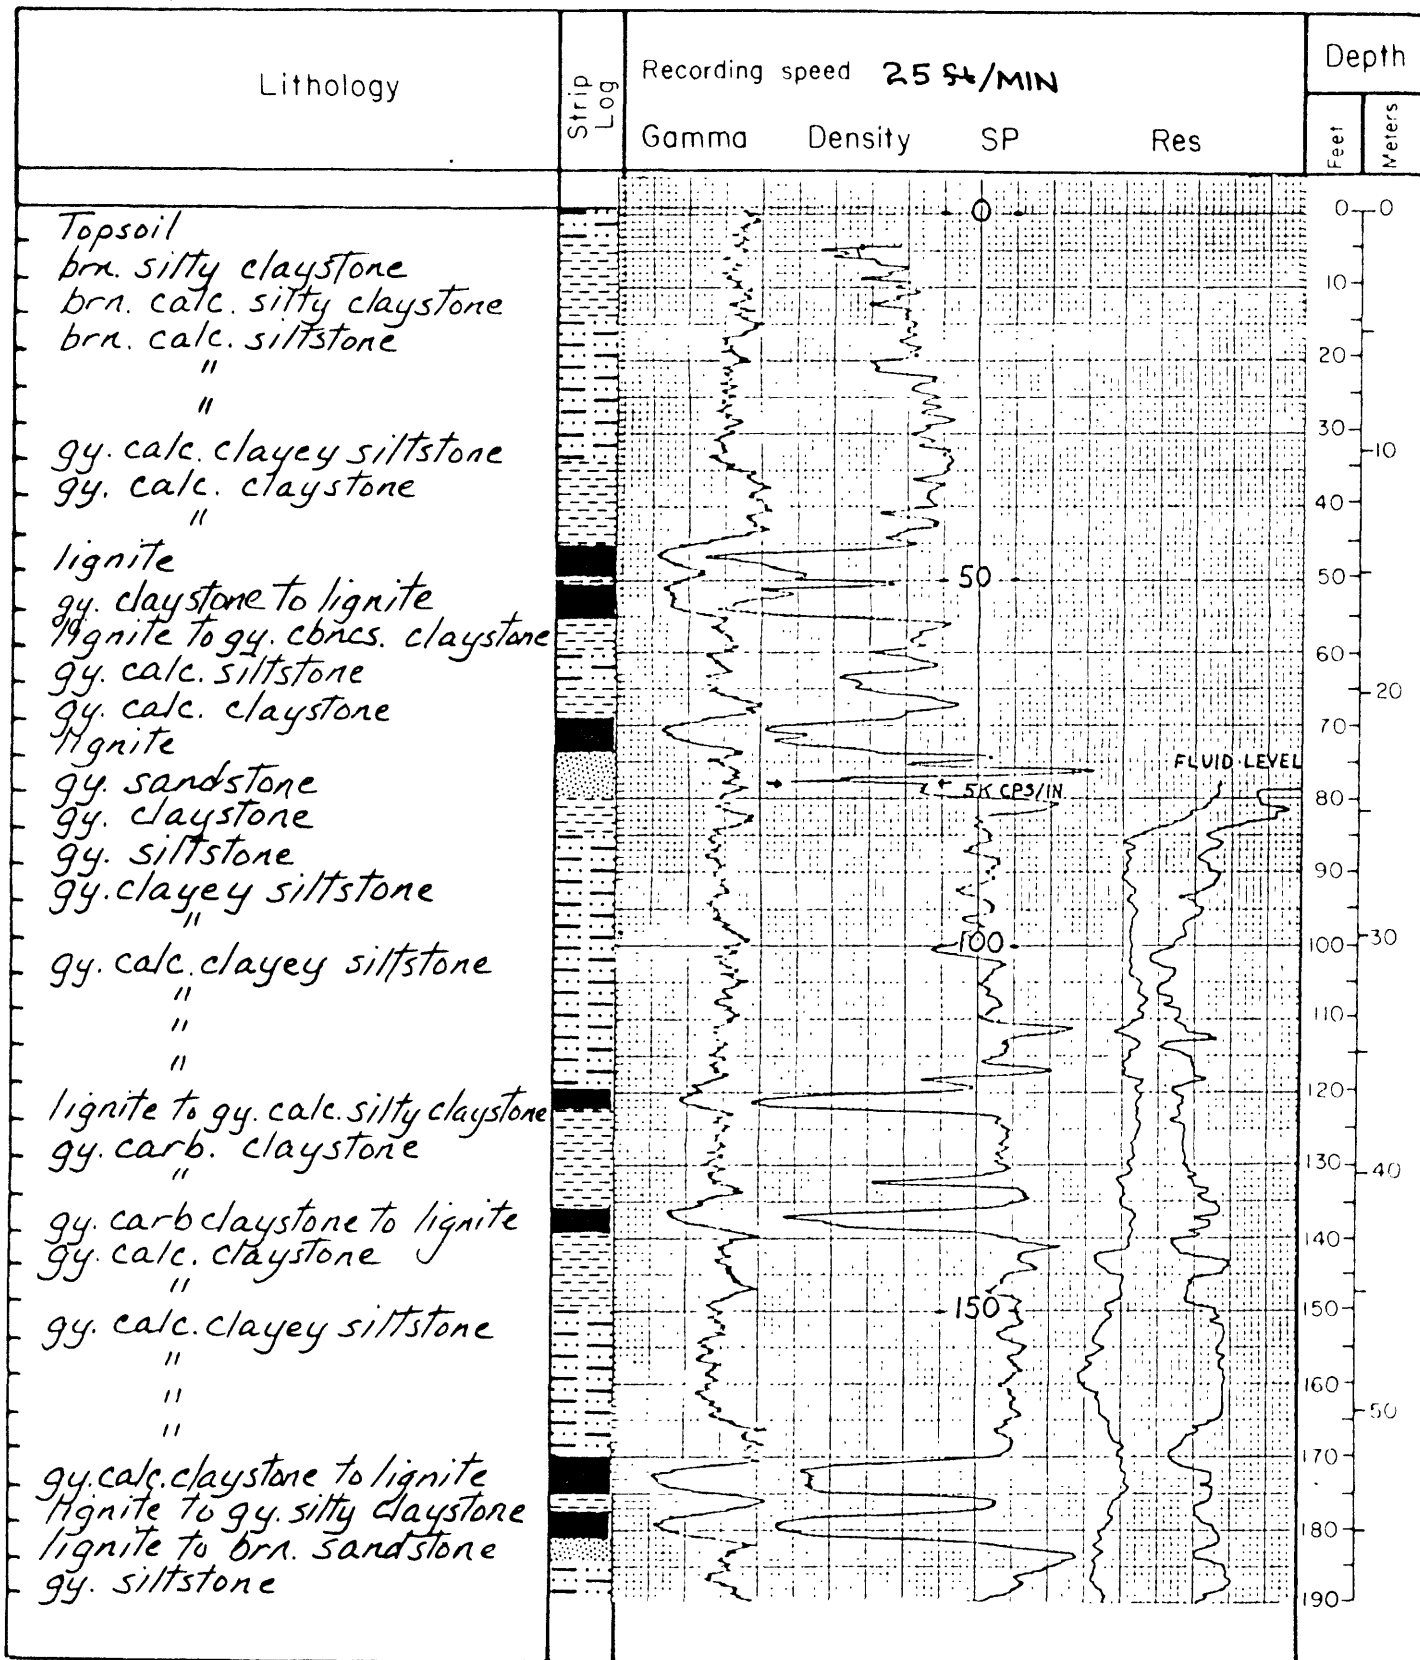 Lithology
Strip Log
Recording speed 25 ft/MIN
Gamma Density SP Res
Depth
Feet
Meters
Topsoil
brn. silty claystone
brn. calc. silty claystone
brn. calc. siltstone
"
"
gy. calc. clayey siltstone
gy. calc. claystone
"
lignite
gy. claystone to lignite
lignite to gy. cbncs. claystone
gy. calc. siltstone
gy. calc. claystone
lignite
gy. sandstone
gy. claystone
gy. siltstone
gy. clayey siltstone
"
gy. calc. clayey siltstone
"
"
"
lignite to gy. calc. silty claystone
gy. carb. claystone
"
gy. carb claystone to lignite
gy. calc. claystone
"
gy. calc. clayey siltstone
"
"
"
gy. calc. claystone to lignite
lignite to gy. silty claystone
lignite to brn. sandstone
gy. siltstone
0
50
FLUID LEVEL
5K CPS/IN
100
150
0
10
20
30
40
50
60
70
80
90
100
110
120
130
140
150
160
170
180
190
0
10
20
30
40
50